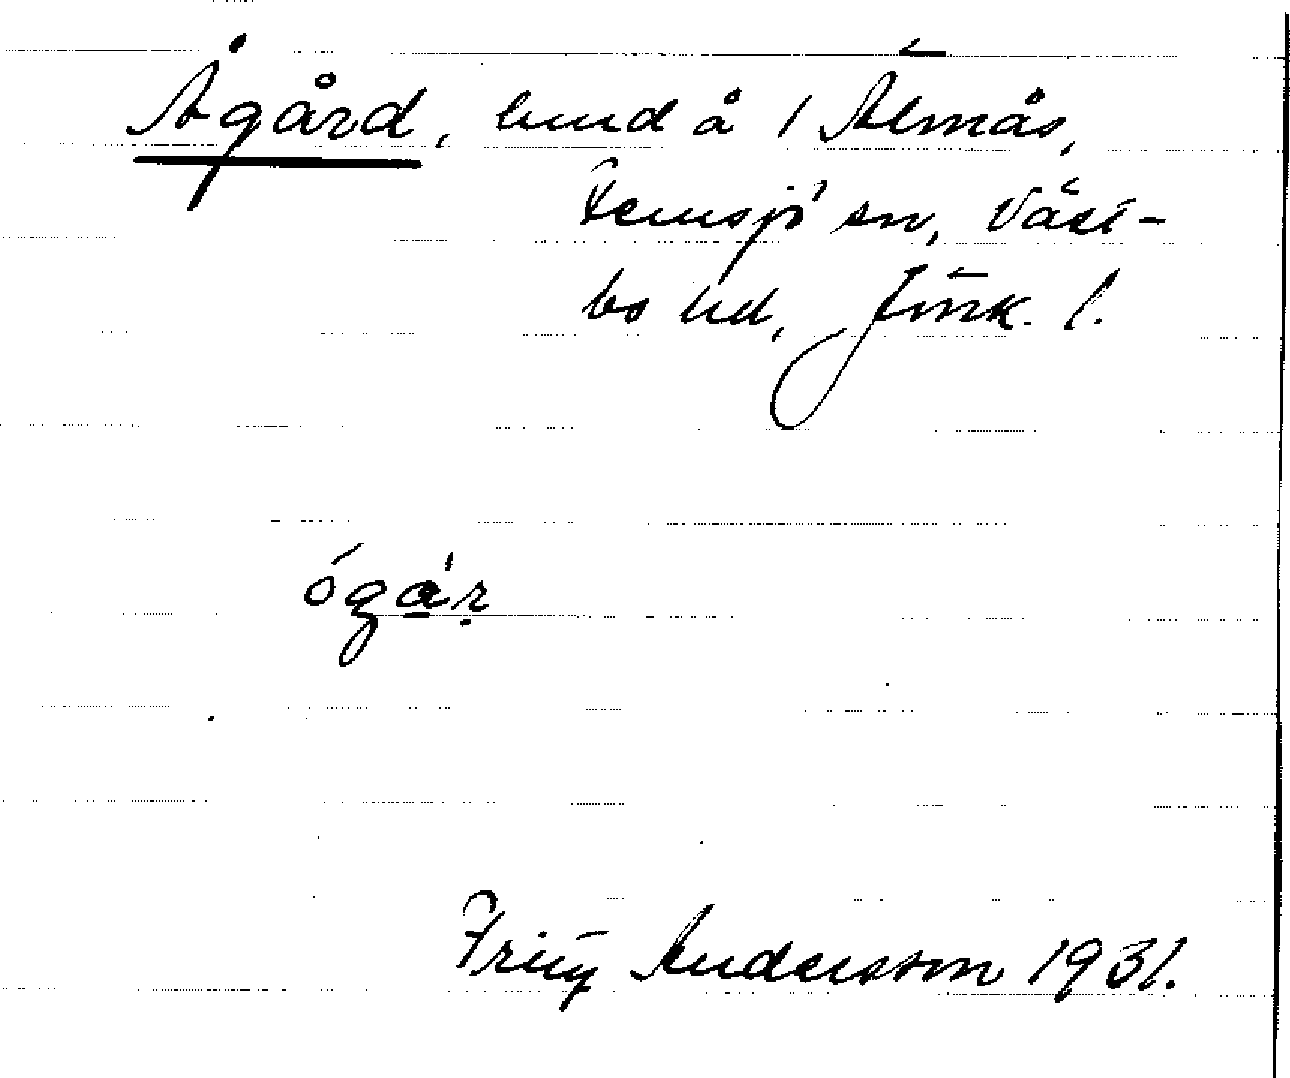 Ågård, hmd å 1 Älmås,
Femsjö sn, Väst-
bo hd, Jönk. l.
ógá̱ṛ
Fritz Andersson 1931.